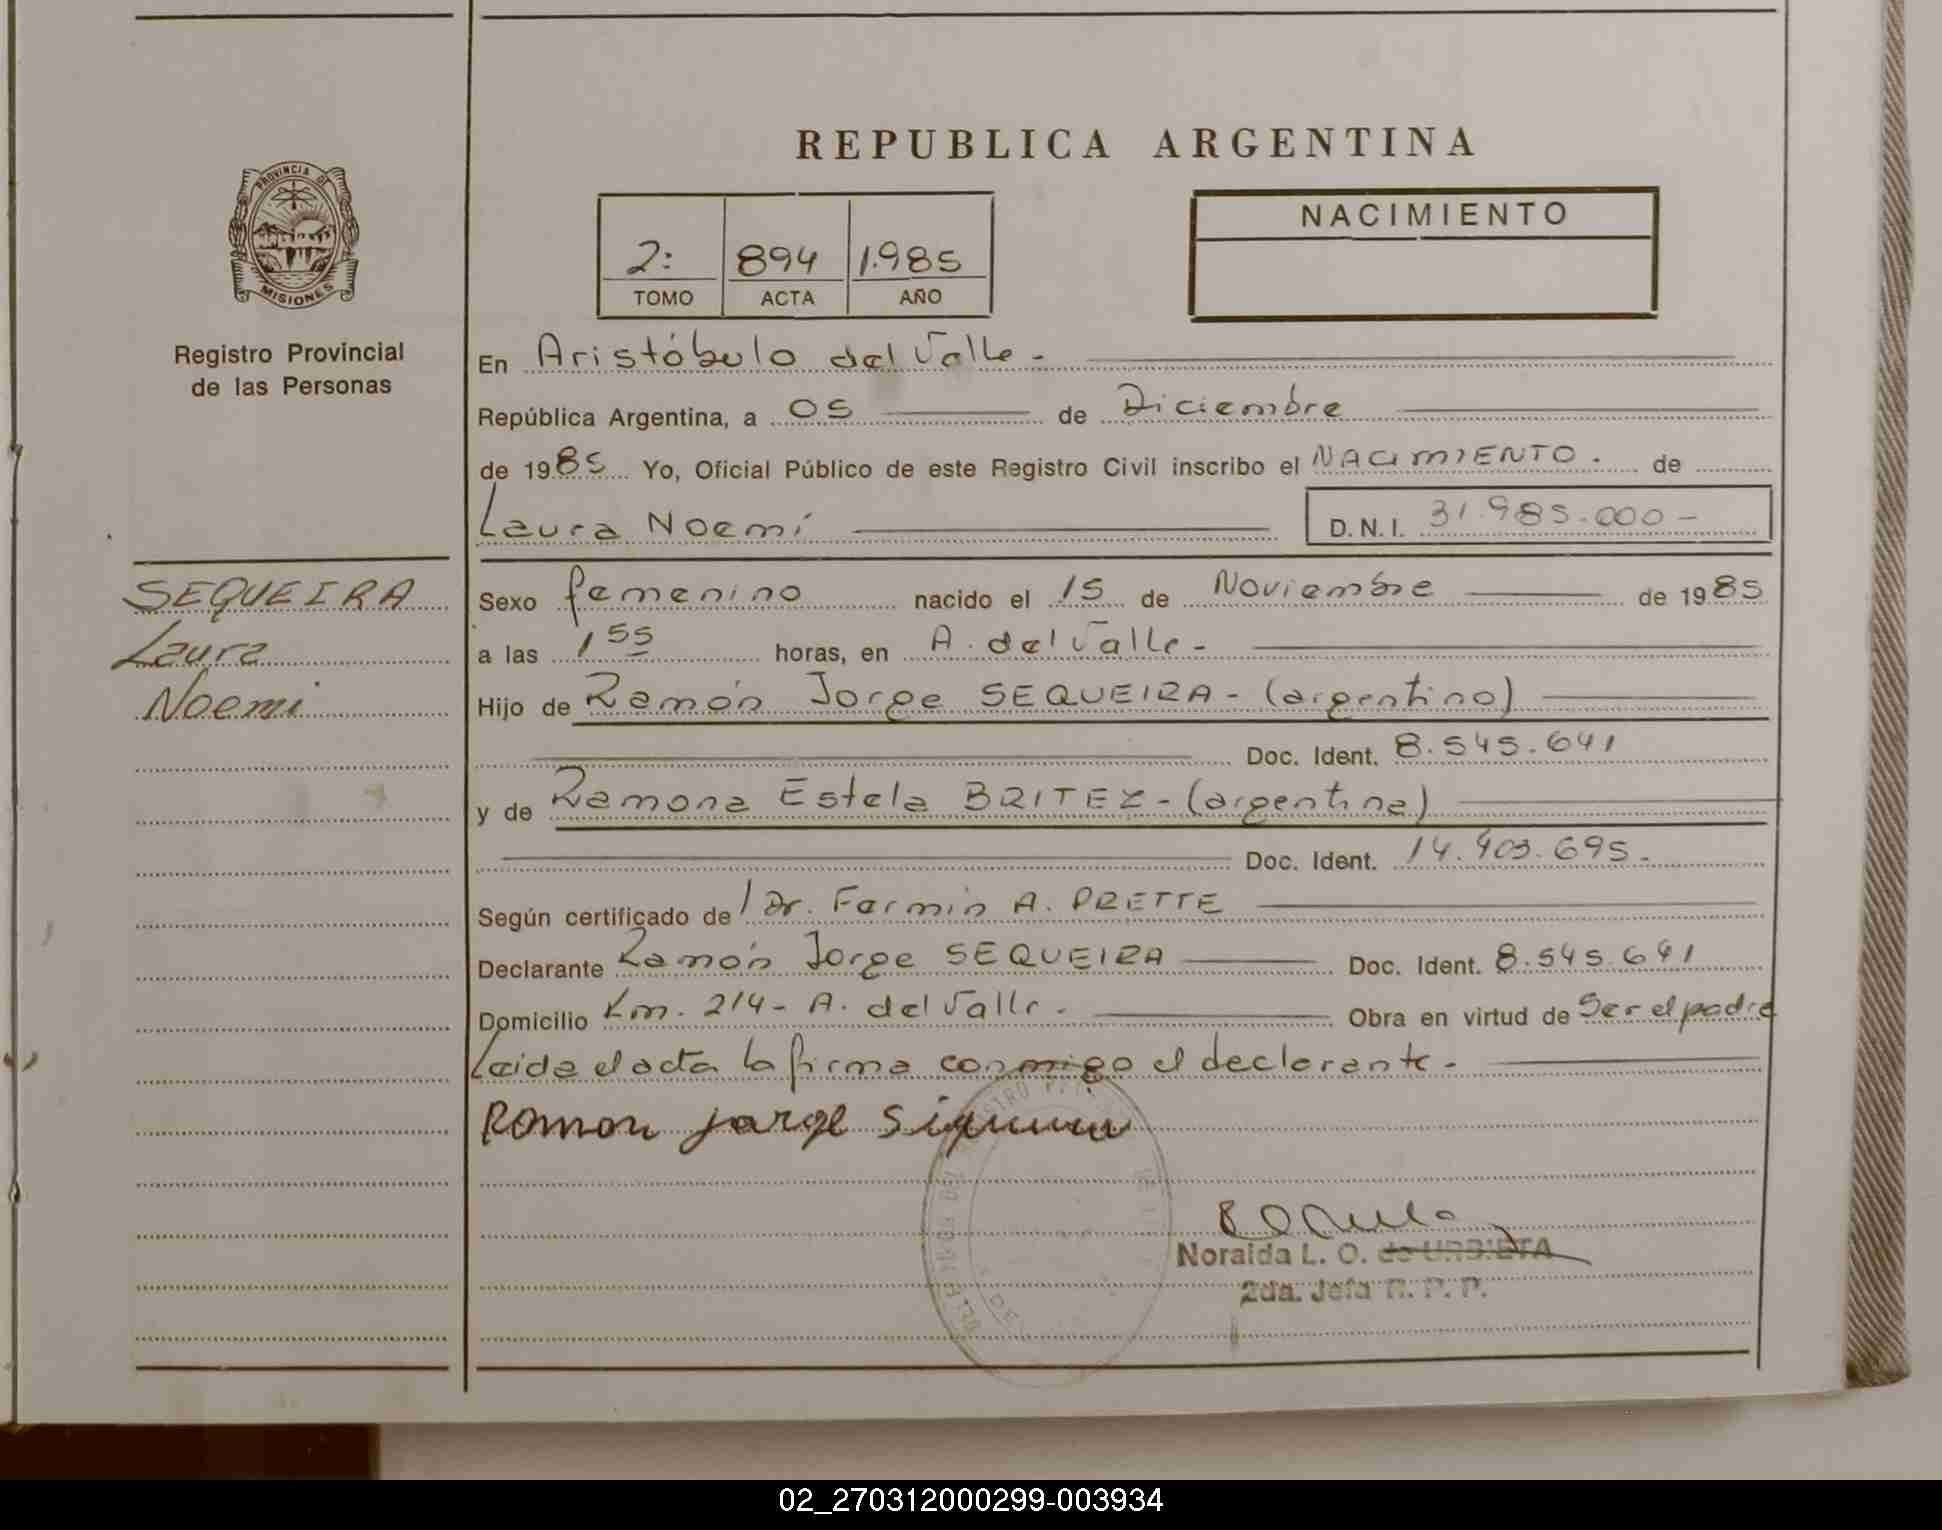 REPUBLICA ARGENTINA
PROVINCIA DE
MISIONES
Registro Provincial
de las Personas
2: 894 1.985
TOMO ACTA AÑO
NACIMIENTO
En Aristóbulo del Valle.-
República Argentina, a 05 de Diciembre
de 1985 Yo, Oficial Público de este Registro Civil inscribo el NACIMIENTO. de
Laura Noemí D.N.I. 31.985.000-
SEQUEIRA
Laura
Noemi
Sexo femenino nacido el 15 de Noviembre de 1985
a las 1 55 horas, en A. del Valle-
Hijo de Ramón Jorge SEQUEIRA- (argentino)
Doc. Ident. 8.545.641
y de Ramona Estela BRITEZ-(argentina)
Doc. Ident. 14.403.695.
Según certificado de Dr. Fermin A. PRETTE
Declarante Ramón Jorge SEQUEIRA Doc. Ident. 8.545.641
Domicilio Km. 214- A. del Valle- Obra en virtud de Ser el padre
Leida el acta la firma conmigo el declarante.-
Ramon Jorge
Noralda L. O. de URBIETA
2da. Jefa R. P. P.
02_270312000299-003934